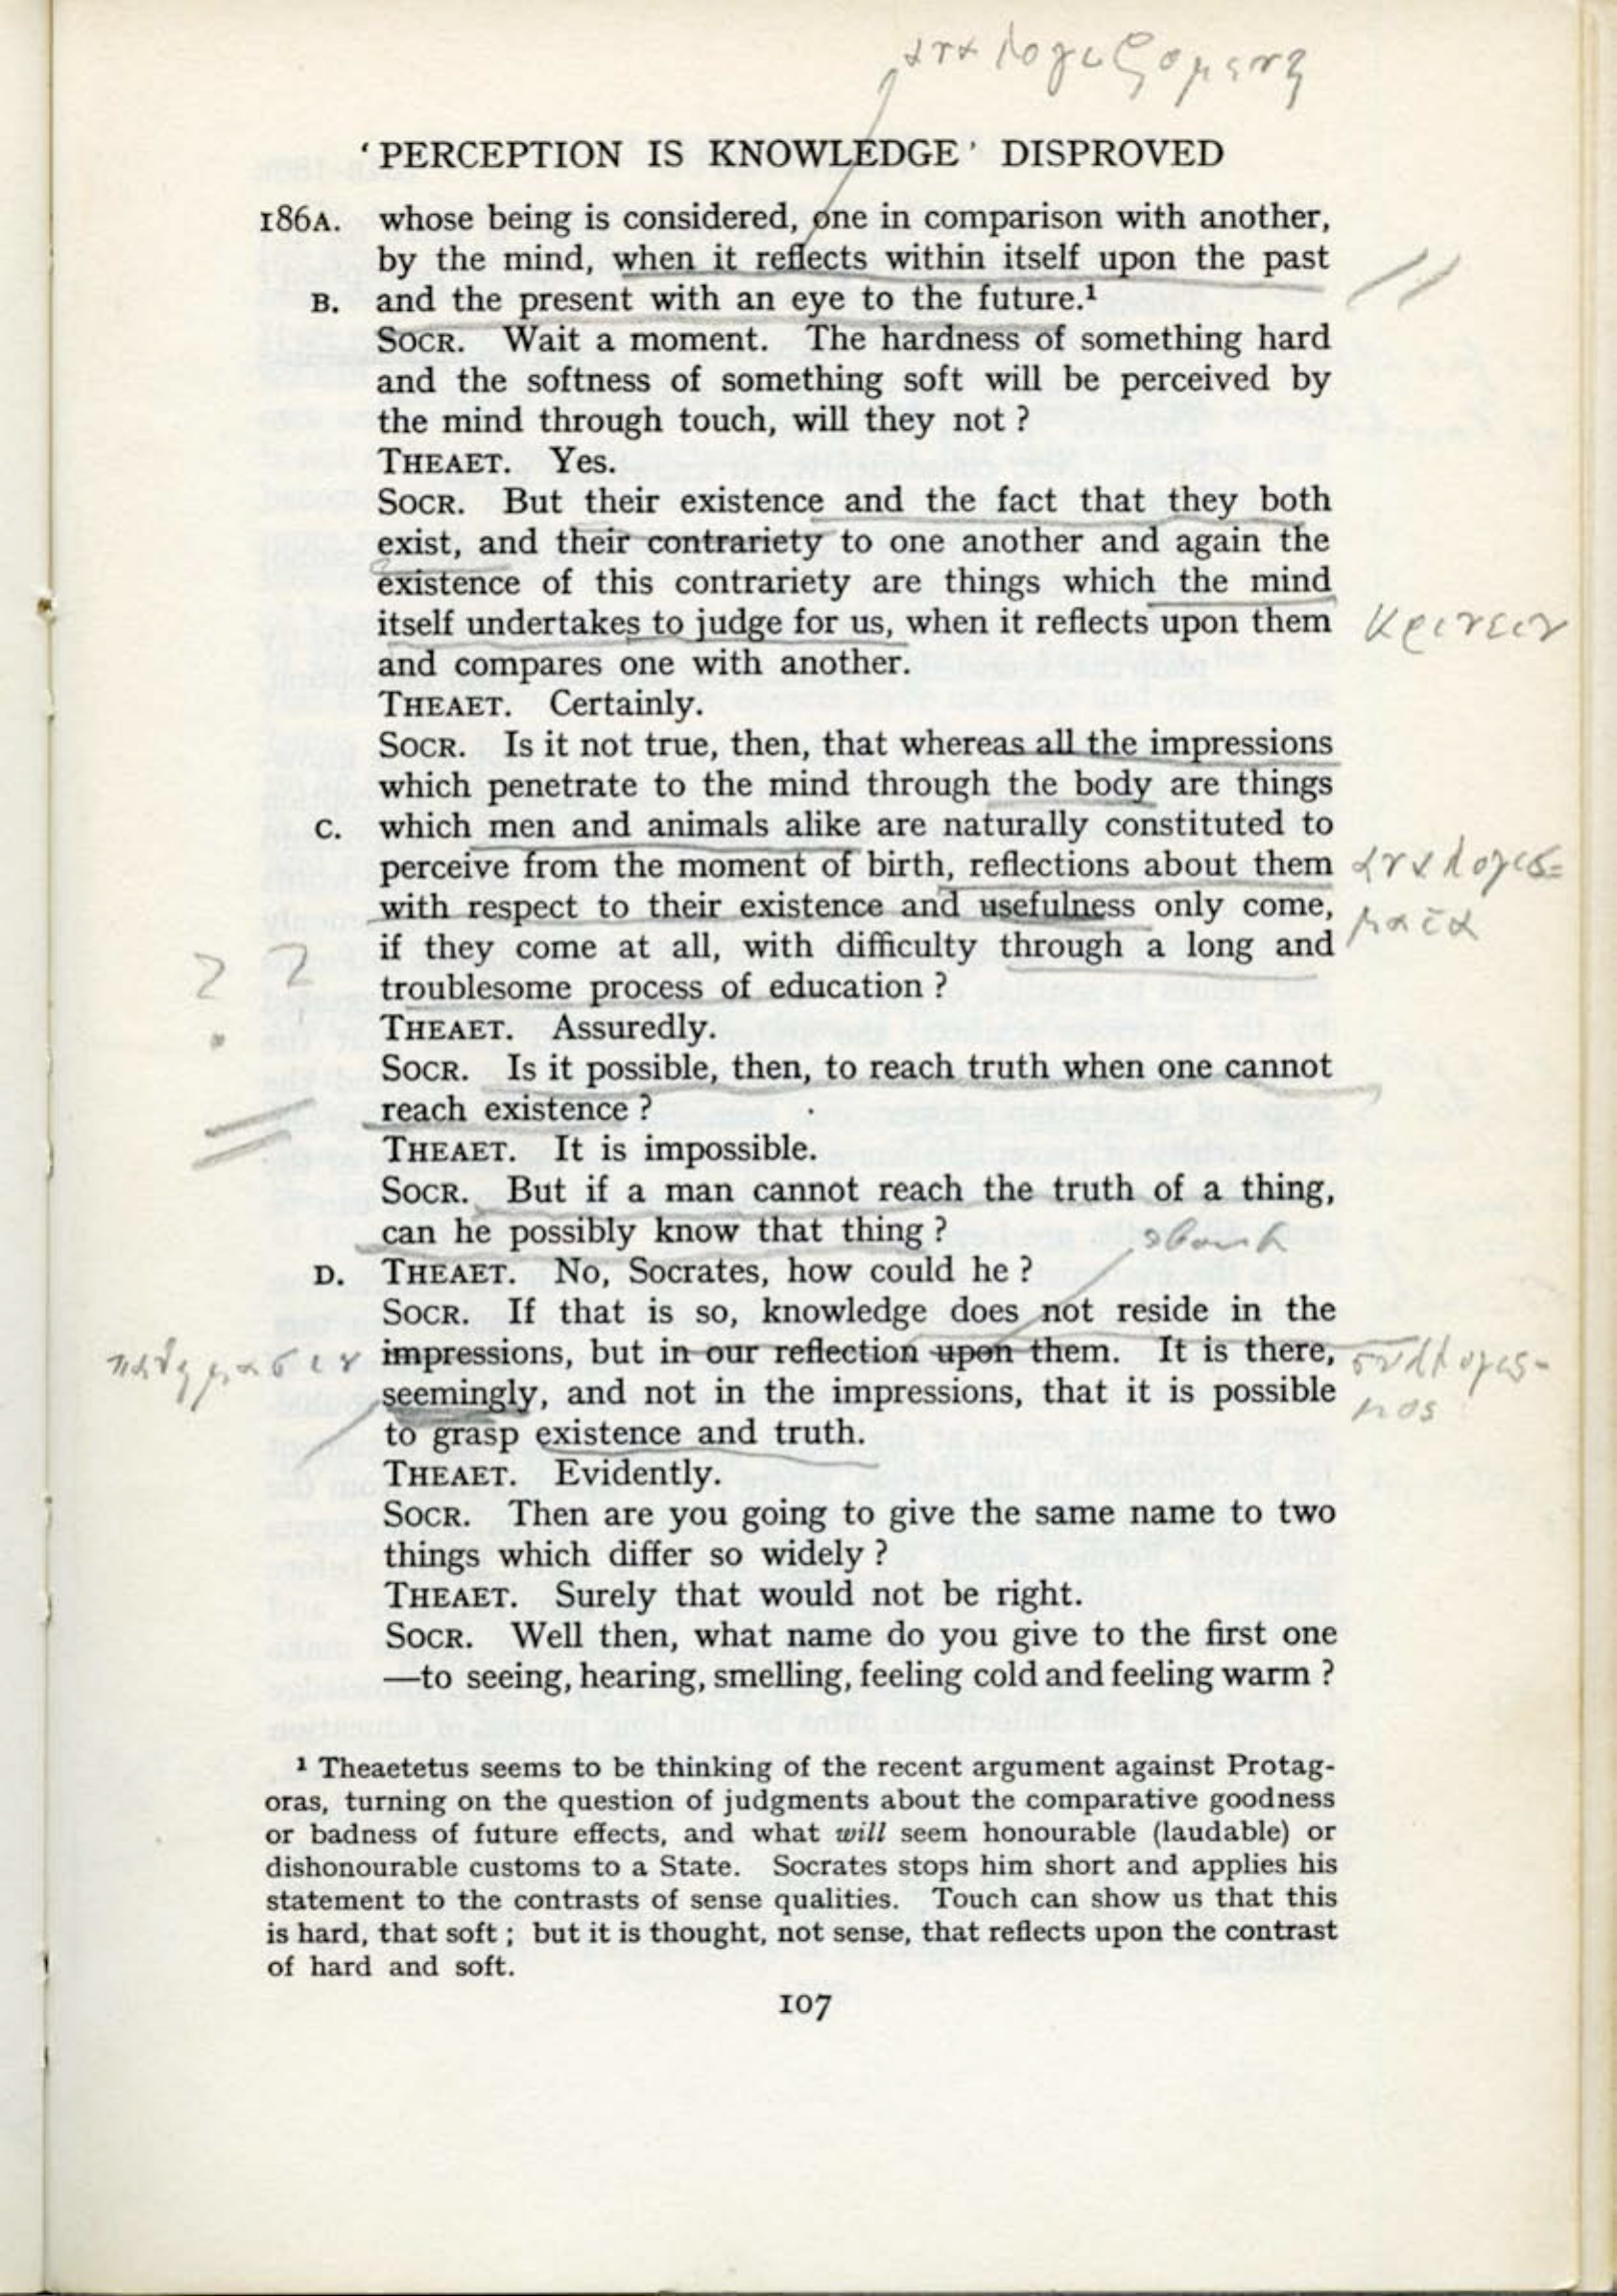 αναλογιζομενη
‘PERCEPTION IS KNOWLEDGE’ DISPROVED
186A. whose being is considered, one in comparison with another,
by the mind, when it reflects within itself upon the past
B. and the present with an eye to the future.¹
SOCR. Wait a moment. The hardness of something hard
and the softness of something soft will be perceived by
the mind through touch, will they not ?
THEAET. Yes.
SOCR. But their existence and the fact that they both
exist, and their contrariety to one another and again the
existence of this contrariety are things which the mind
itself undertakes to judge for us, when it reflects upon them κρινειν
and compares one with another.
THEAET. Certainly.
SOCR. Is it not true, then, that whereas all the impressions
which penetrate to the mind through the body are things
C. which men and animals alike are naturally constituted to
perceive from the moment of birth, reflections about them αναλογισ=
with respect to their existence and usefulness only come, ματα
? ? if they come at all, with difficulty through a long and
troublesome process of education ?
THEAET. Assuredly.
SOCR. Is it possible, then, to reach truth when one cannot
reach existence ?
THEAET. It is impossible.
SOCR. But if a man cannot reach the truth of a thing,
can he possibly know that thing ?
D. THEAET. No, Socrates, how could he ?
SOCR. If that is so, knowledge does not reside in the
παθημασιν impressions, but in our reflection upon them. It is there, συλλογισ-
seemingly, and not in the impressions, that it is possible μος
to grasp existence and truth.
THEAET. Evidently.
SOCR. Then are you going to give the same name to two
things which differ so widely ?
THEAET. Surely that would not be right.
SOCR. Well then, what name do you give to the first one
—to seeing, hearing, smelling, feeling cold and feeling warm ?
¹ Theaetetus seems to be thinking of the recent argument against Protag-
oras, turning on the question of judgments about the comparative goodness
or badness of future effects, and what will seem honourable (laudable) or
dishonourable customs to a State. Socrates stops him short and applies his
statement to the contrasts of sense qualities. Touch can show us that this
is hard, that soft ; but it is thought, not sense, that reflects upon the contrast
of hard and soft.
107